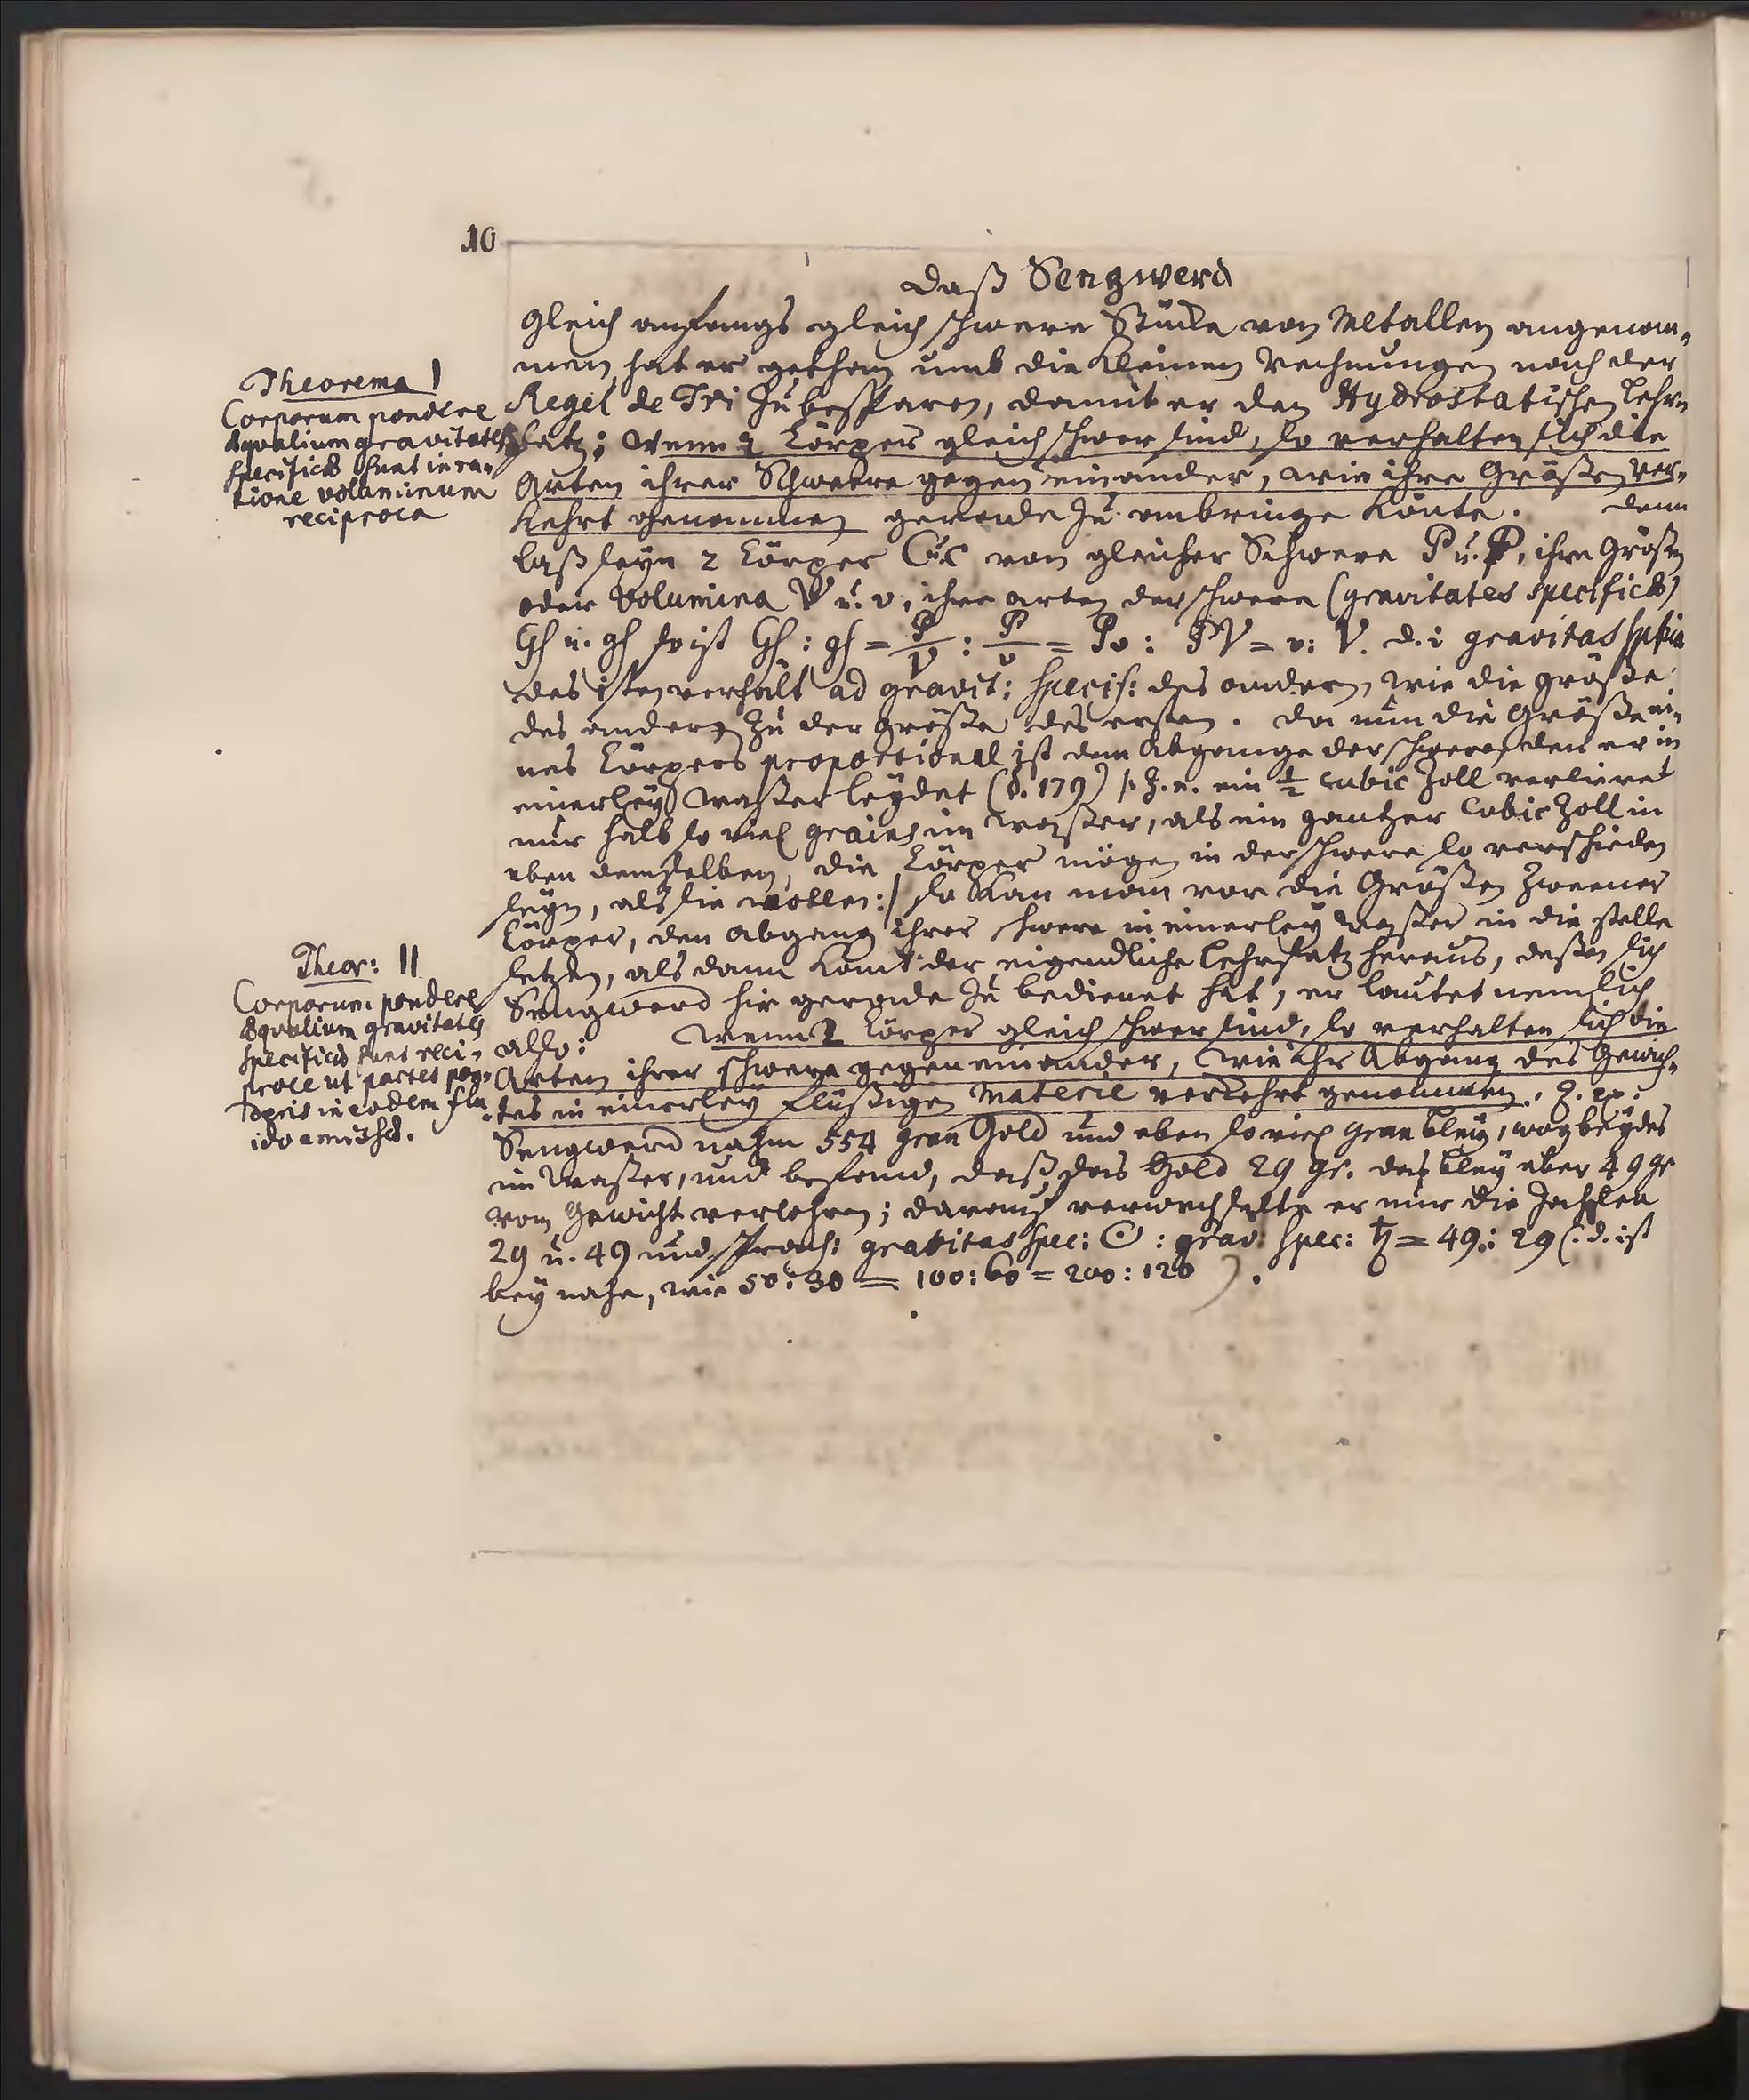 10
daß Sengwerd
gleich anfangs gleich schwere Stücke von Metallen angenom-
men hat er gethan umb die kleinen Rechnungen nach der
Regel de Tri zu besparen, damit er den Hydrostatischen Lehr-
satz: Wenn 2 Cörper gleich schwer sind, so verhalten sich die
Arten ihrer Schwere gegen einander, wie ihre Größen ver-
kehrt genommen gerade zu anbringe könte. denn
laß seyn 2 Cörper C u. c von gleicher Schwere P u. P, ihre Größen
oder Volumina V u. v, ihre arten der schwere (gravitates specificæ)
Gs u. gs so ist Gs : gs = P/V : P/v = Pv : PV = v : V. d. i gravitas spfica
des 1sten verhält ad gravit: specif: des andern, wie die größe
des andern zu der größe des ersten. da nun die Größe ei-
nes Cörpers proportional ist dem Abgange der schwere, den er in
einerley Waßer leydet (§. 179) /: z. e. ein 1/2 cubic Zoll verlieret
nur halb so viel grains im waßer, als ein gantzer Cubic Zoll in
eben demselben, die Cörper mögen in der schwere so verschieden
seyn, als sie wollen :/ so kan man vor die Größen zweener
Cörper, den abgang ihrer schwere in einerley waßer in die stelle
setzen, als dann komt der eigendliche Lehrsatz heraus, deßen sich
Sengwerd hir gerade zu bedienet hat, er lautet nemlich
also: Wenn 2 Cörper gleich schwer sind, so verhalten sich die
Arten ihrer schwere gegen einander, wie ihr Abgang des Gewich-
tes in einerley flüßigen Materie verkehrt genommen. z. ex:
Sengwerd nahm 554 gran Gold und eben so viel gran bley, wog beydes
im Waßer, und befand, daß das Gold 29 gr. das bley aber 49 gr
vom Gewicht verlohren; darauf verwechselte er nur die Zahlen
29 u. 49 und sprach: gravitas spec: ☉ : grav: spec: ♄ = 49 : 29 (: d. ist
bey nahe, wie 50 : 30 = 100 : 60 = 200 : 120 ).
Theorema I
Corporum pondere
æqualium gravitates
specificæ sunt in ra-
tione voluminum
reciproca
Theor: II
Corporum pondere
æqualium gravitates
specificæ sunt reci-
proce ut partes pon-
deris in eodem flu
ido amissæ.